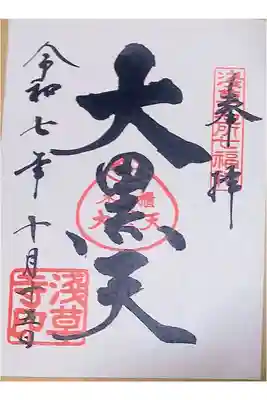 奉拝
浅草名所七福神
大黒天
令和七年十月十五日
浅草寺印